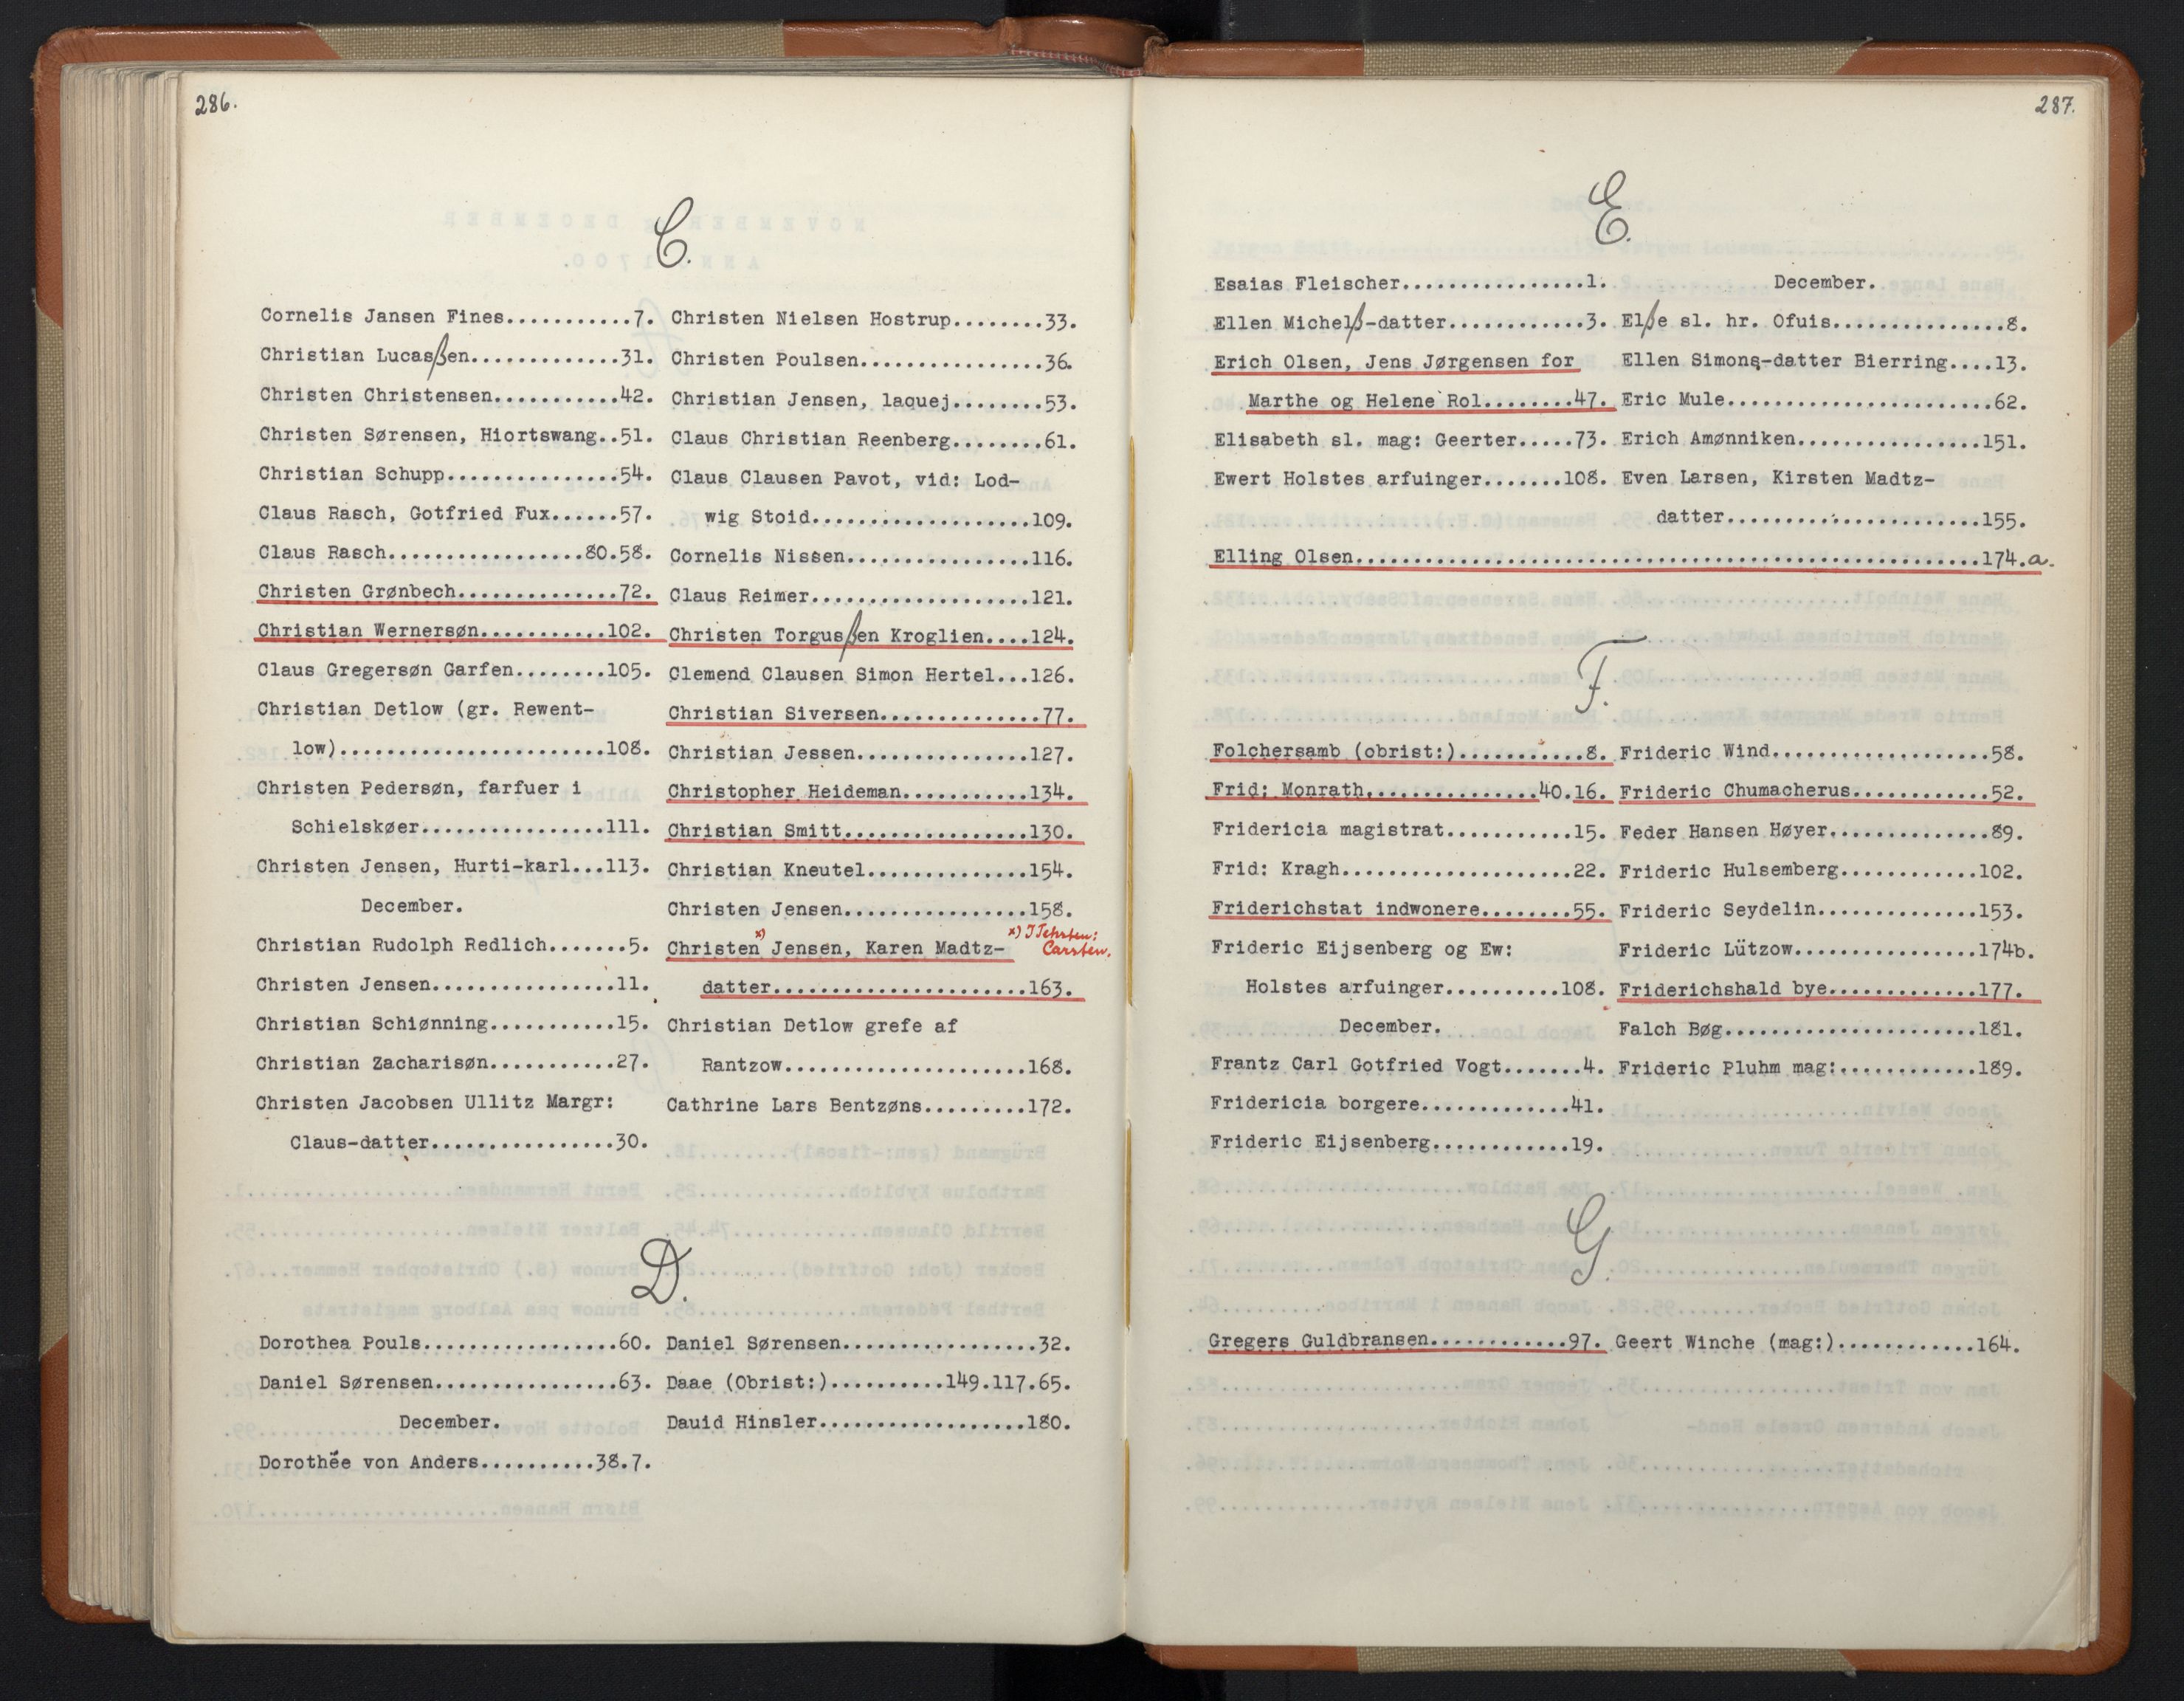 286.
C.
Cornelis Jansen Fines...........7.
Christian Lucasßen.............31.
Christen Christensen...........42.
Christen Sørensen, Hiortswang..51.
Christian Schupp...............54.
Claus Rasch, Gotfried Fux......57.
Claus Rasch.................80.58.
Christen Grønbech..............72.
Christian Wernersøn...........102.
Claus Gregersøn Garfen........105.
Christian Detlow (gr. Rewent-
low).......................108.
Christen Pedersøn, farfuer i
Schielskøer................111.
Christen Jensen, Hurti-karl...113.
December.
Christian Rudolph Redlich.......5.
Christen Jensen................11.
Christian Schiønning...........15.
Christian Zacharisøn...........27.
Christen Jacobsen Ullitz Margr:
Claus-datter................30.
Christen Nielsen Hostrup........33.
Christen Poulsen................36.
Christian Jensen, laquej........53.
Claus Christian Reenberg........61.
Claus Clausen Pavot, vid: Lod-
wig Stoid...................109.
Cornelis Nissen................116.
Claus Reimer...................121.
Christen Torgusßen Kroglien....124.
Clemend Clausen Simon Hertel...126.
Christian Siversen..............77.
Christian Jessen...............127.
Christopher Heideman...........134.
Christian Smitt................130.
Christian Kneutel..............154.
Christen Jensen................158.
Christen x) Jensen, Karen Madtz-
x) I Teksten: Carsten.
datter......................163.
Christian Detlow grefe af
Rantzow.....................168.
Cathrine Lars Bentzøns.........172.
D.
Dorothea Pouls.................60.
Daniel Sørensen................63.
December.
Dorothëe von Anders..........38.7.
Daniel Sørensen.................32.
Daae (Obrist:)..........149.117.65.
Dauid Hinsler..................180.
287.
E.
Esaias Fleischer................1.
Ellen Michelß-datter............3.
Erich Olsen, Jens Jørgensen for
Marthe og Helene Rol........47.
Elisabeth sl. mag: Geerter.....73.
Ewert Holstes arfuinger.......108.
December.
Elße sl. hr. Ofuis...............8.
Ellen Simons-datter Bierring....13.
Eric Mule.......................62.
Erich Amønniken................151.
Even Larsen, Kirsten Madtz-
datter......................155.
Elling Olsen......................................................174.a.
F.
Folchersamb (obrist:)...........8.
Frid: Monrath...............40.16.
Fridericia magistrat...........15.
Frid: Kragh....................22.
Friderichstat indwonere........55.
Frideric Eijsenberg og Ew:
Holstes arfuinger..........108.
December.
Frantz Carl Gotfried Vogt.......4.
Fridericia borgere.............41.
Frideric Eijsenberg............19.
Frideric Wind...................58.
Frideric Chumacherus............52.
Feder Hansen Høyer..............89.
Frideric Hulsemberg............102.
Frideric Seydelin..............153.
Frideric Lützow................174b.
Friderichshald bye.............177.
Falch Bøg......................181.
Frideric Pluhm mag:............189.
G.
Gregers Guldbransen............97.
Geert Winche (mag:)............164.